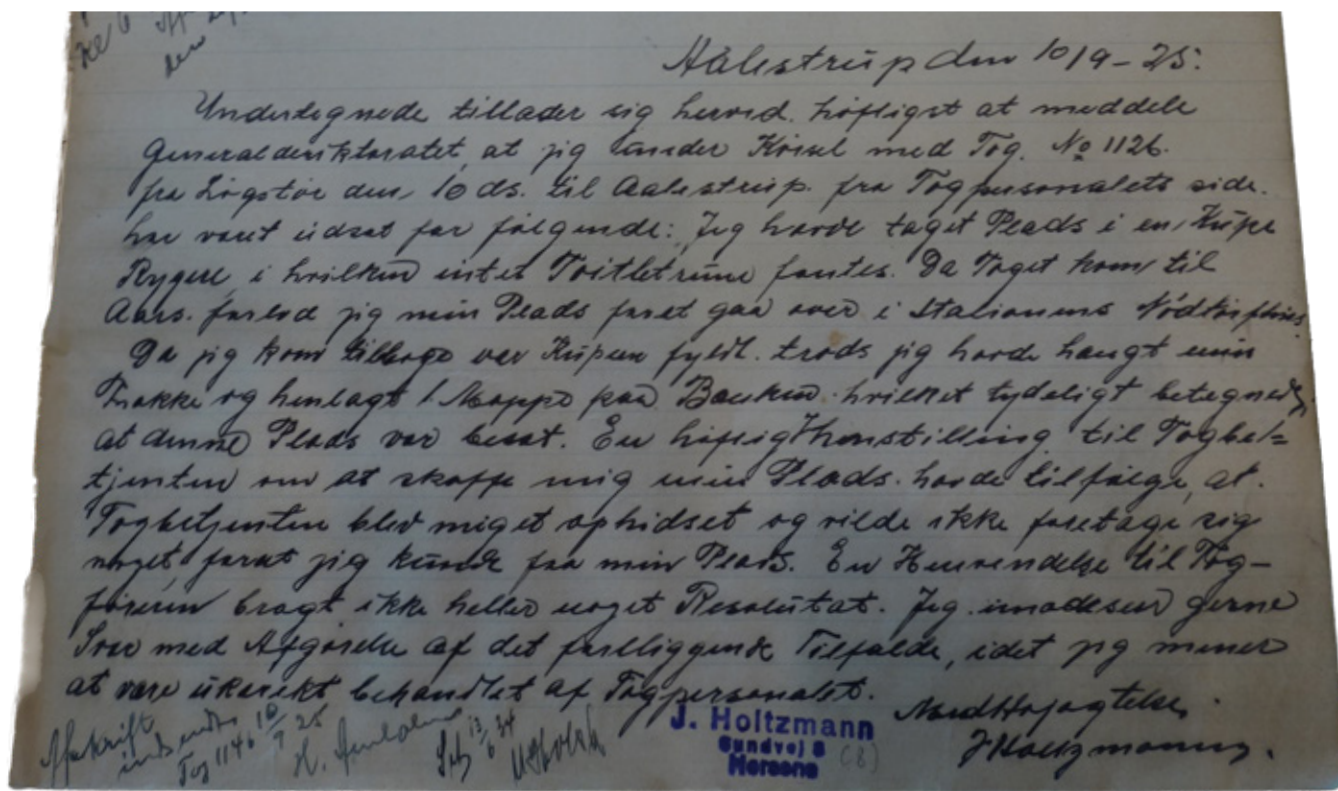 Aalestrup den 10/9 - 25.
Undertegnede tillader sig herved höfligst at meddele
Generaldirektoratet, at jeg under Körsel med Tog. No 1126.
fra Lögstör den 10 ds. til Aalestrup. fra Togpersonalets side.
har været udsat for fölgende: Jeg havde taget Plads i en Kupe
Rygere, i hvilken intet Toiletrum fantes. Da Toget kom til
Aars. forlod jeg min Plads foret gaa over i Stationens
Da jeg kom tilbage var Kupeen fyldt. trods jeg havde hængt min
Frakke og henlagt 1 Mappe paa Bænken. hvilket tydeligt betegnede,
at denne Plads var besat. En höflig Henstilling til Togbe=
tjenten om at skaffe mig min Plads. havde tilfölge, at.
Togbetjenten blev meget ophidset og vilde ikke foretage sig
noget, forat jeg kunde faa min Plads. En Henvendelse til Tog-
föreren bragt ikke heller noget Resolutat. Jeg imödeser gerne
Svar med Afgörelse af det forliggende Tilfælde, idet jeg mener
at være ukorekt behandlet af Togpersonalet.
Med Höjagtelse
J Holtzmann.
J. Holtzmann
Sundvej 8
Horsens
(8)
Afskrift
indsendt 10/9 25
Tog 1146
13/6 34